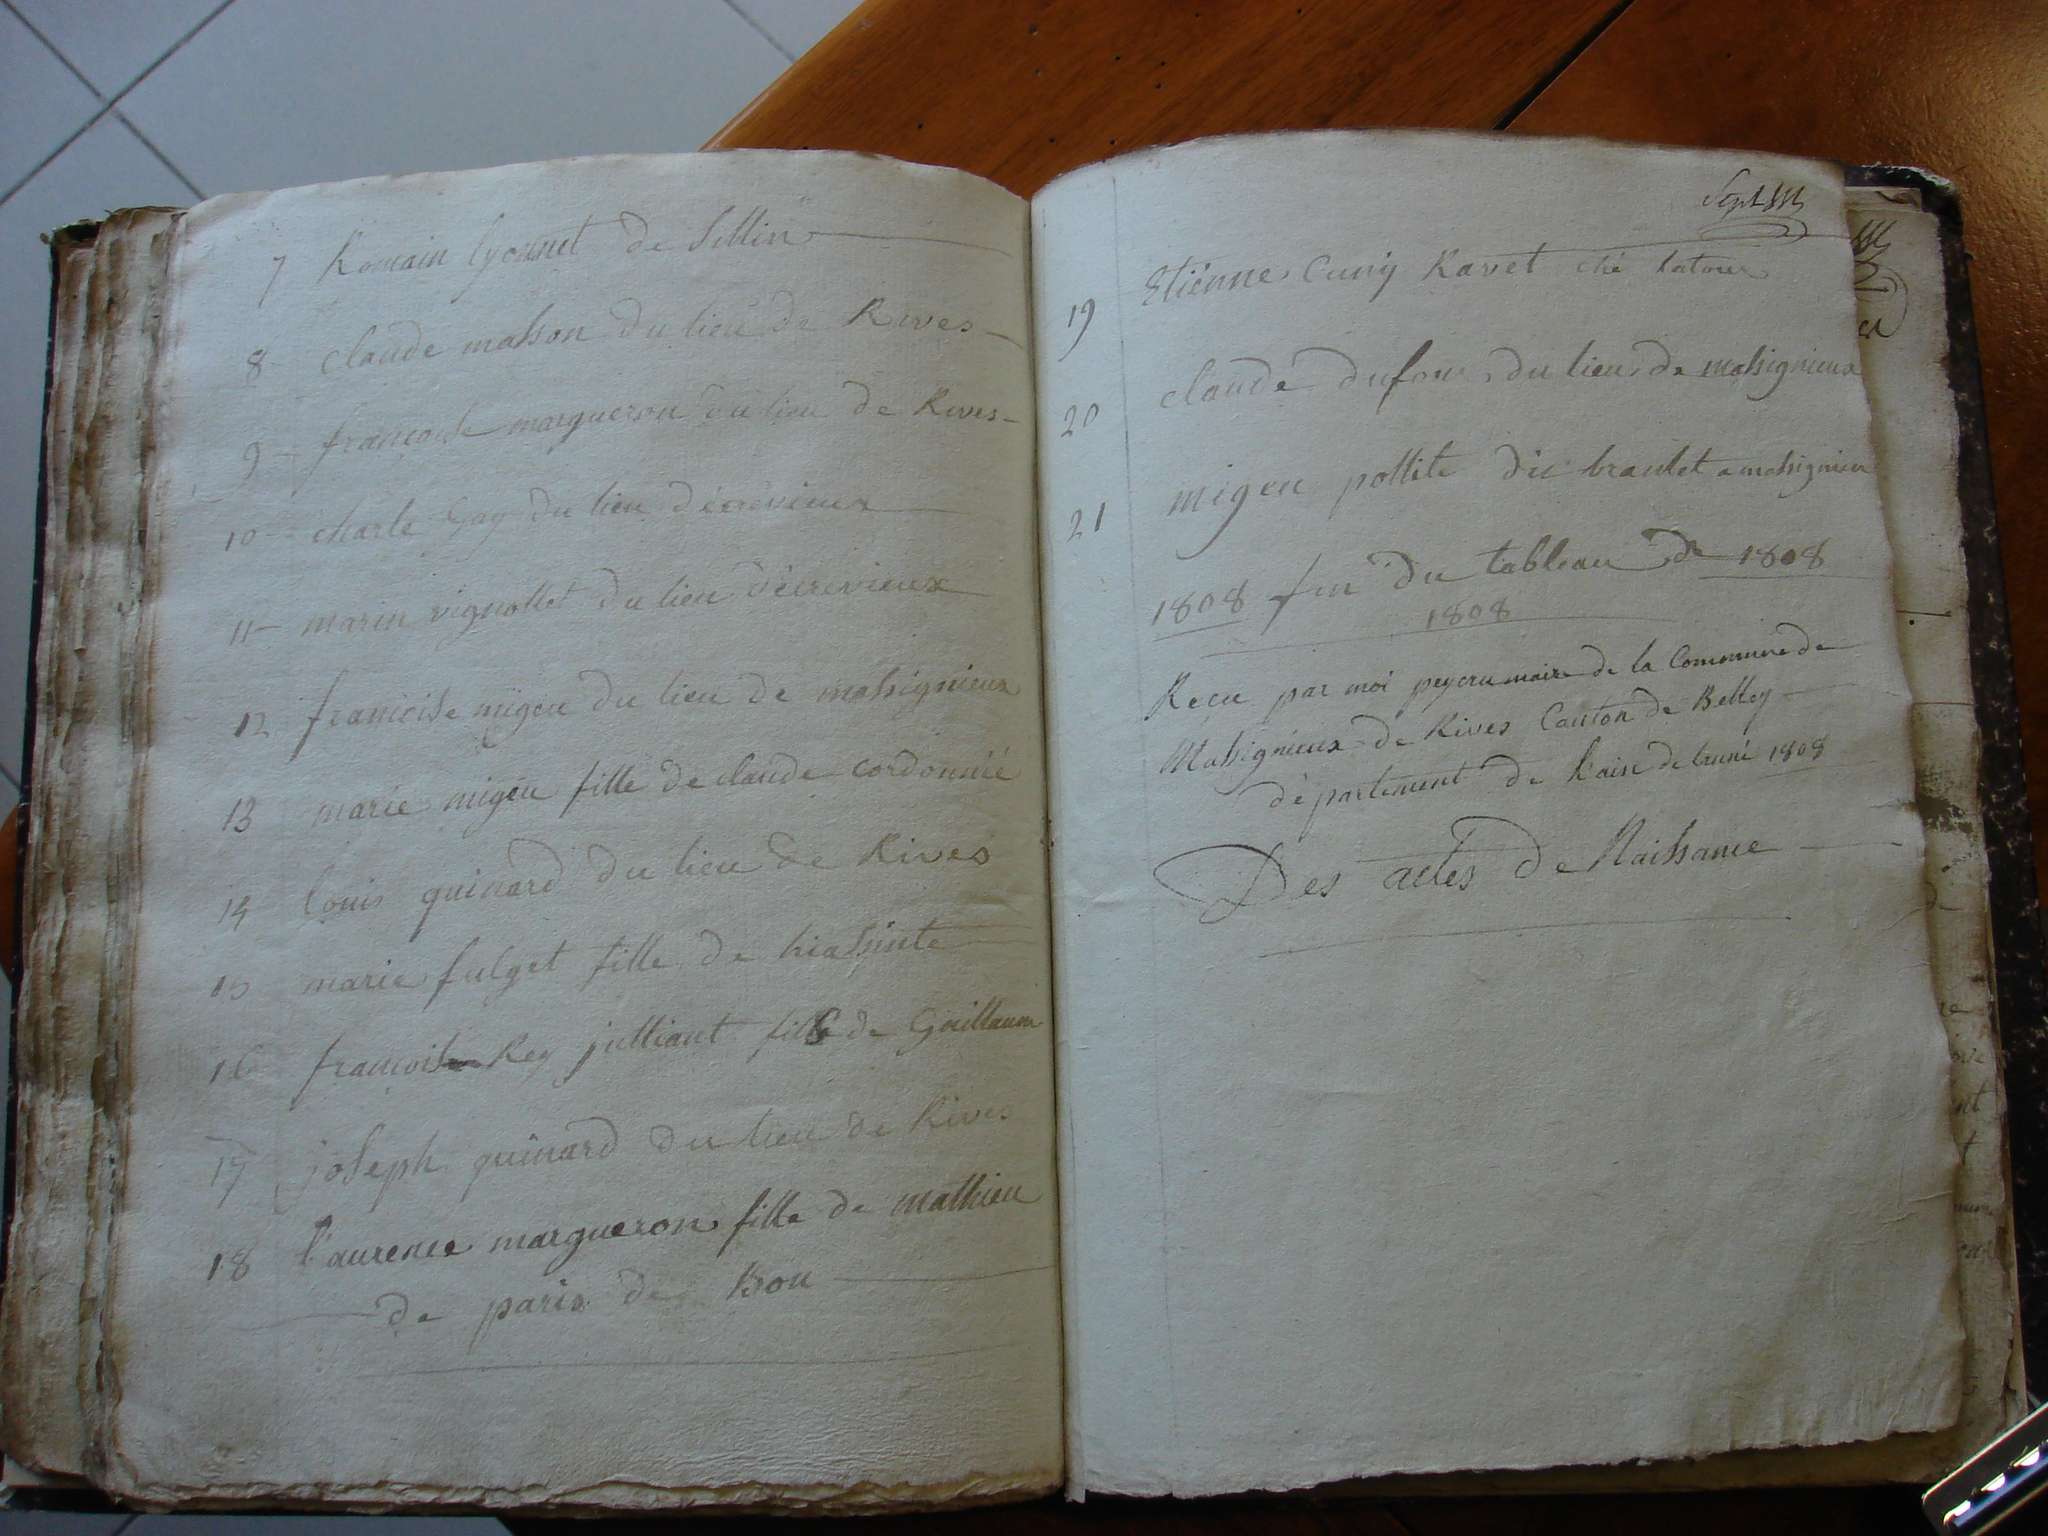 7 Romain lyonnet de sillin
8 claude masson du lieu de Rives
9 francoise margueron du lieu de Rives
10 charle Gay du lieu d'écrevieux
11 marin vignollet du lieu d'écrevieux
12 francoise migeu du lieu de massignieux
13 marie migeu fille de claude cordonnié
14 louis quinard du lieu de Rives
15 marie fulget fille de hiassinte
16 francoise Rey julliant fille de Guillaume
17 joseph quinard du lieu de Rives
18 l'aurence margueron fille de mathieu
de paris de
Sept
19 Etiénne Cuny Ravet ché latour
20 claude dufour du lieu de massignieux
21 migeu pollite dit braulet a massignieu
1808 fin du tableau de 1808
1808
Recu par moi peycru maire de la Commune de
Massignieux de Rives Canton de Belley
département de l'ain de lanné 1808
Des actes de Naissance